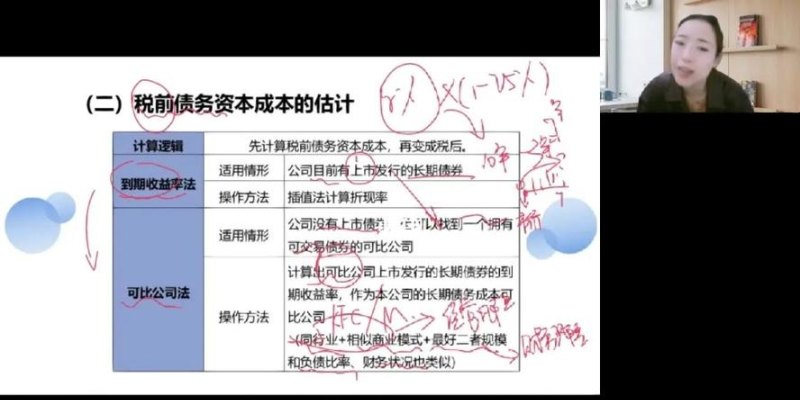 (二) 税前债务资本成本的估计
计算逻辑 先计算税前债务资本成本，再变成税后。
到期收益率法 适用情形 公司目前有上市发行的长期债券
操作方法 插值法计算折现率
可比公司法 适用情形 公司没有上市债 可以找到一个拥有
可交易债券的可比公司
操作方法 计算出可比公司上市发行的长期债券的到
期收益率，作为本公司的长期债务成本可
比公司
（同行业+相似商业模式+最好二者规模
和负债比率、财务状况也类似）
X(1-25%)
KFC / M